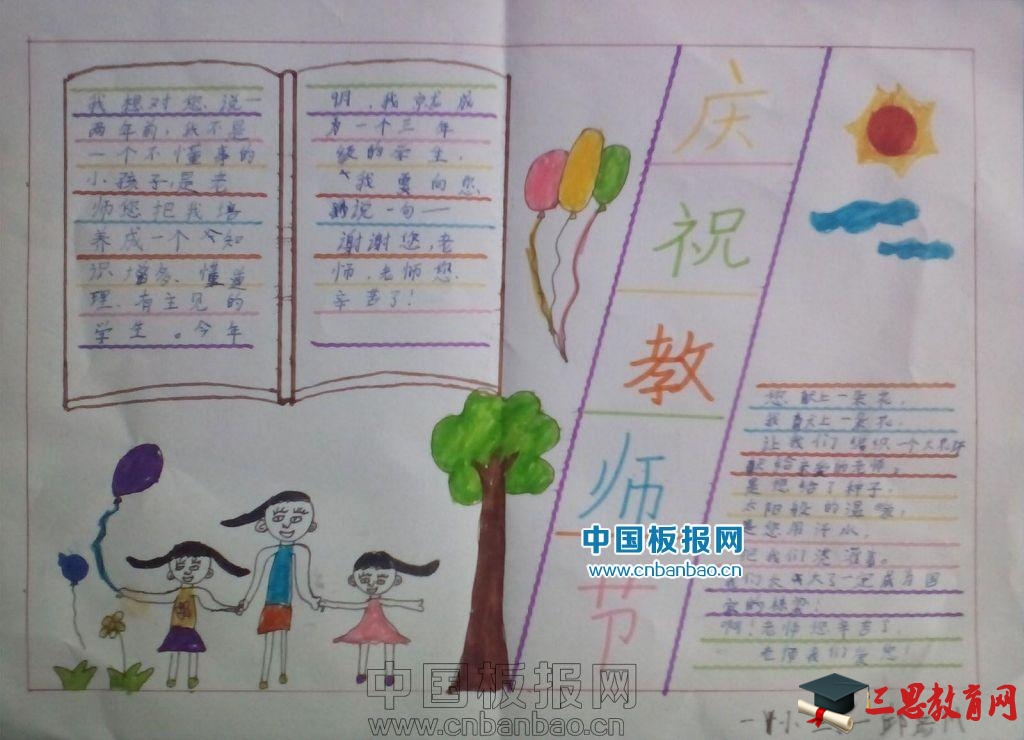 我想对您说一
两年前,我不是
一个不懂事的
小孩子,是老
师您把我培
养成一个知
识、增多、懂道
理、有主见的
学生。今年
9月,我就成
为一个三年
级的学生,
我要向您
说一句——
谢谢您,老
师,老师您
辛苦了!
庆
祝
教
师
节
您献上一朵花,
我献上一朵花,
让我们组织一个大花环
献给亲爱的老师,
是您给了种子,
太阳般的温暖,
是您用汗水,
把我们浇灌着。
我们长大了一定成为国
家的栋梁!
啊!老师您辛苦了,
老师我们爱您!
中国板报网
www.cnbanbao.cn
中国板报网
www.cnbanbao.cn
三思教育网